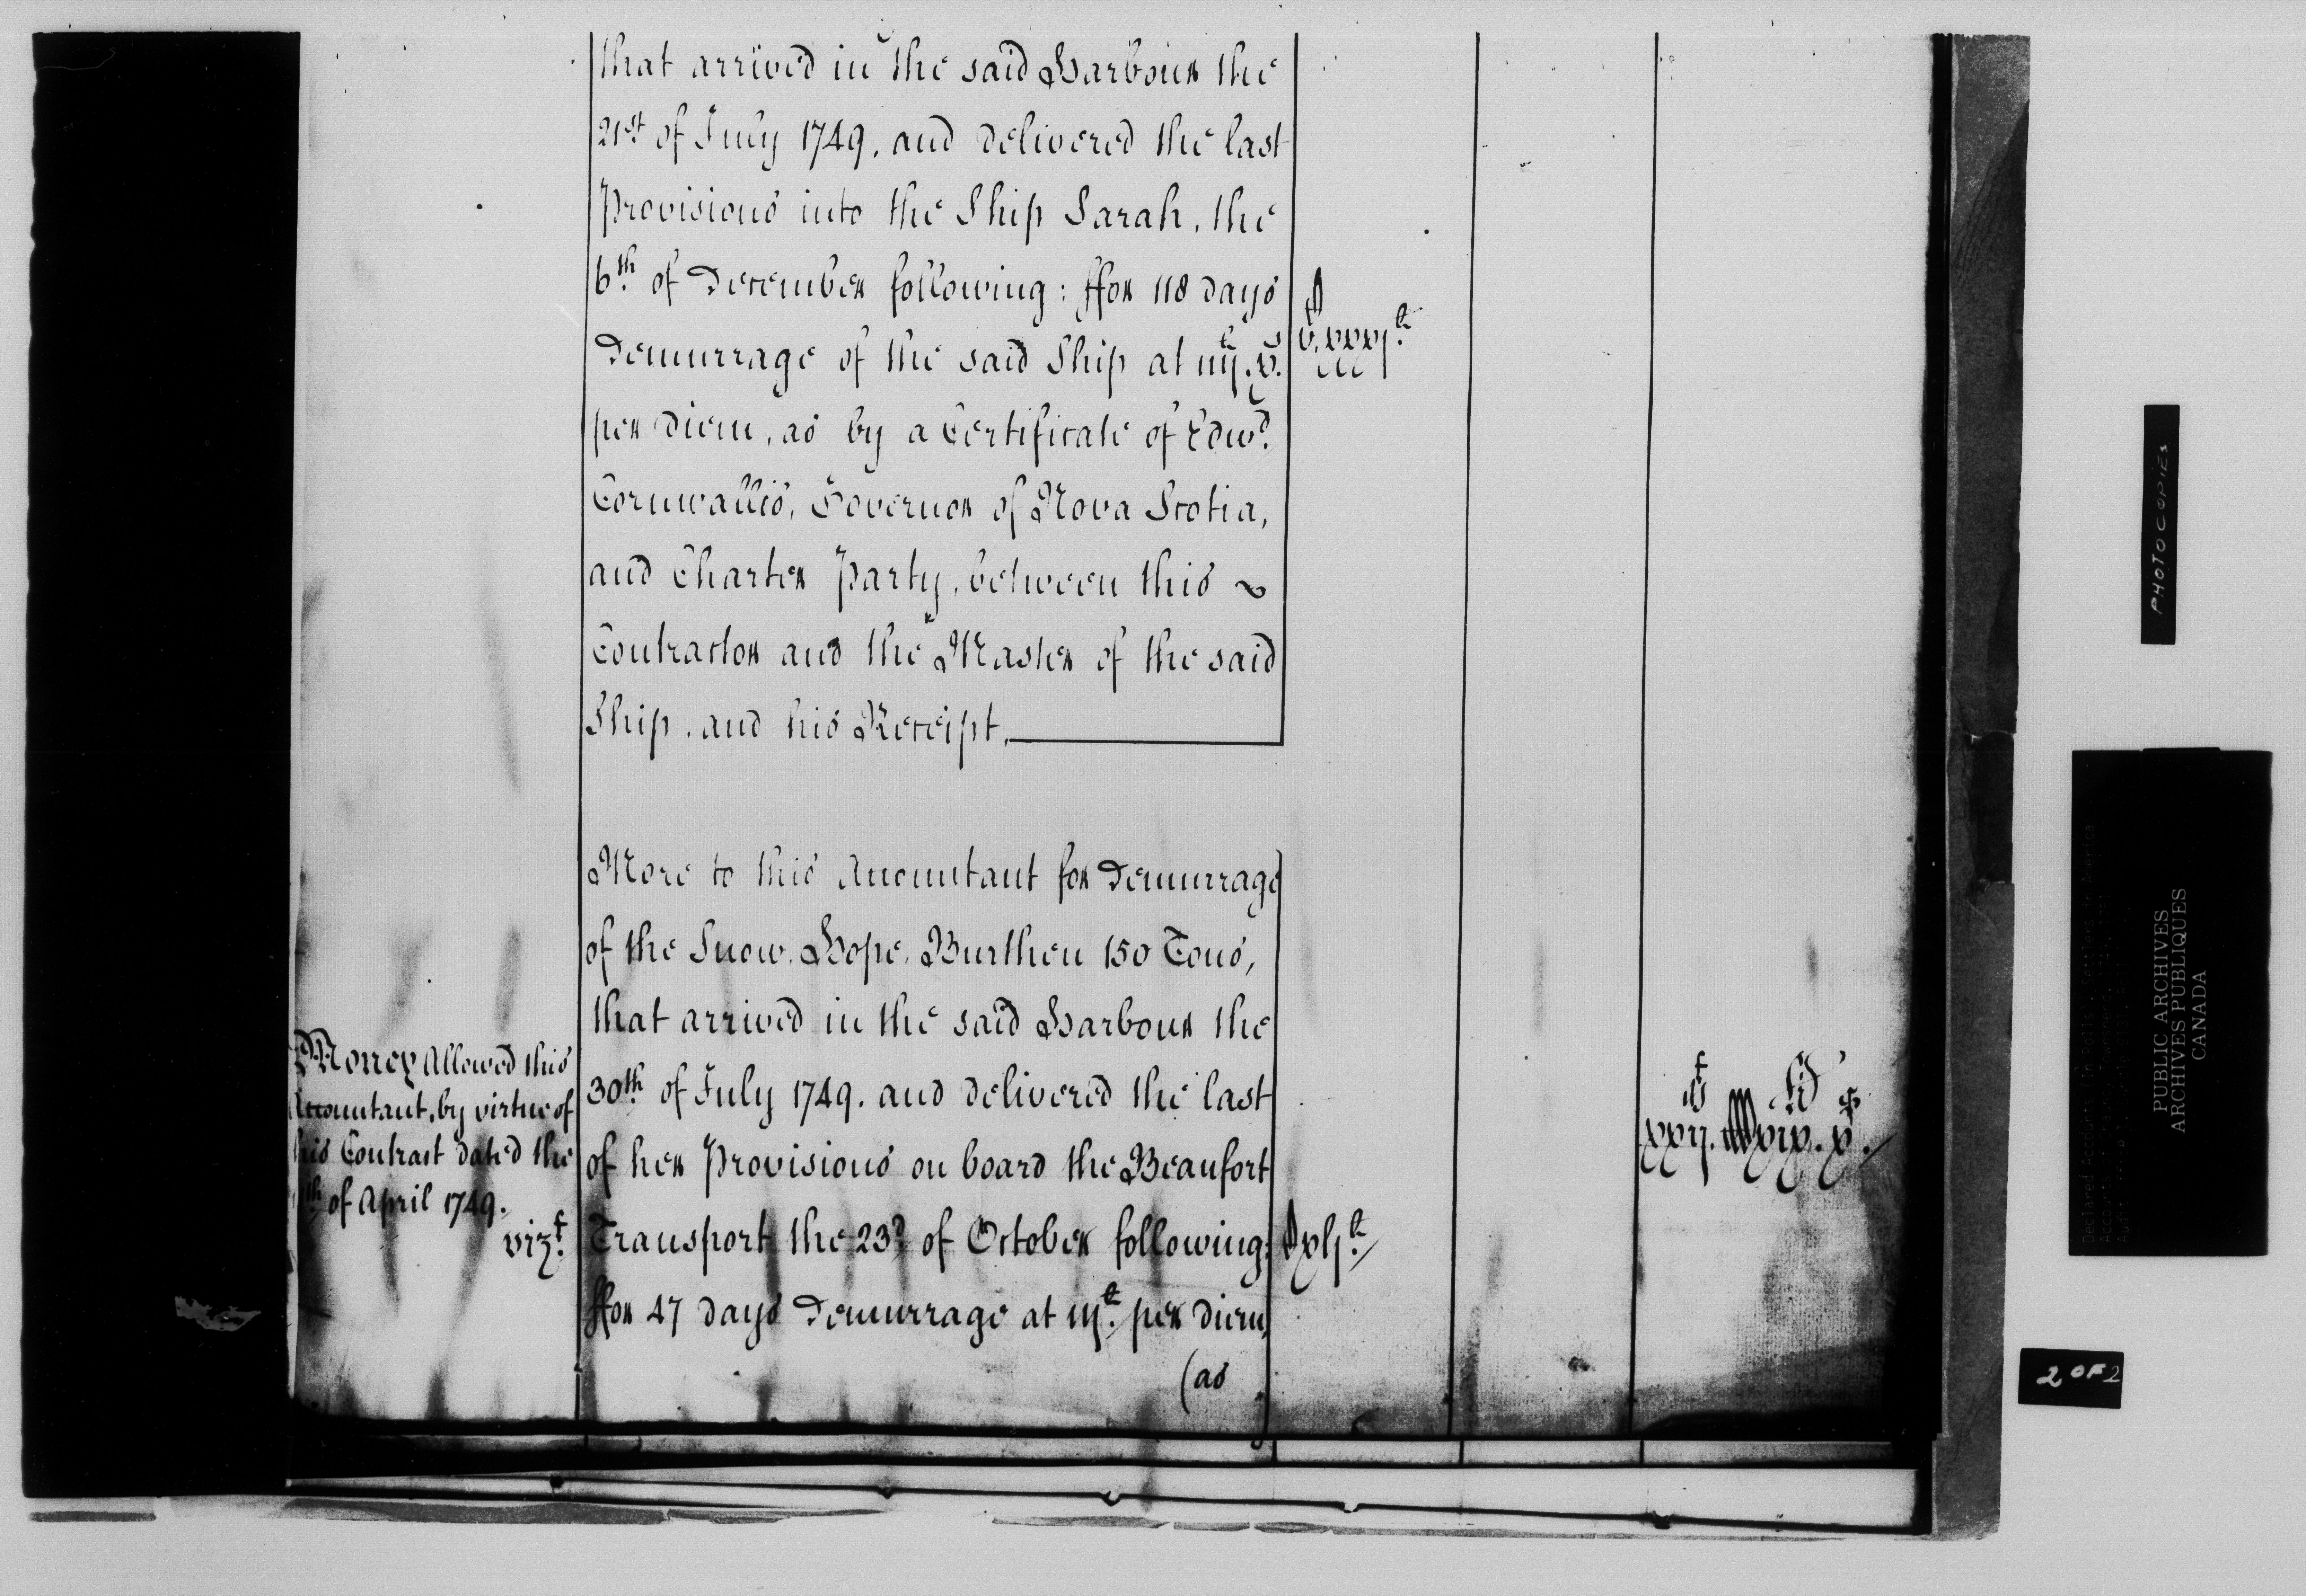 that arrived in the said Harbour the
21st of July 1749. and delivered the last
Provisions into the Ship Sarah, the
6th of December following: ffor 118 days
Demurrage of the said Ship at iiij£. x.s
per diem, as by a Certificate of Edwd.
Cornwallis, Governor of Nova Scotia,
and Charter Party, between this ~
Contractor and the Master of the said
Ship, and his Receipt.
More to this Accountant for Demurrage
of the Snow, Hope, Burthen 150 Tons,
that arrived in the said Harbour the
30th of July 1749. and delivered the last
of her Provisions on board the Beaufort
Transport the 23d. of October following:
ffor 47 days Demurrage at iij£. per diem,
(as
Money Allowed this
Accountant, by virtue of
his Contract dated the
th of April 1749.
vizt.
v.c xxxj£.
Cxlj£.
PHOTOCOPIES
PUBLIC ARCHIVES
ARCHIVES PUBLIQUES
CANADA
2 OF 2